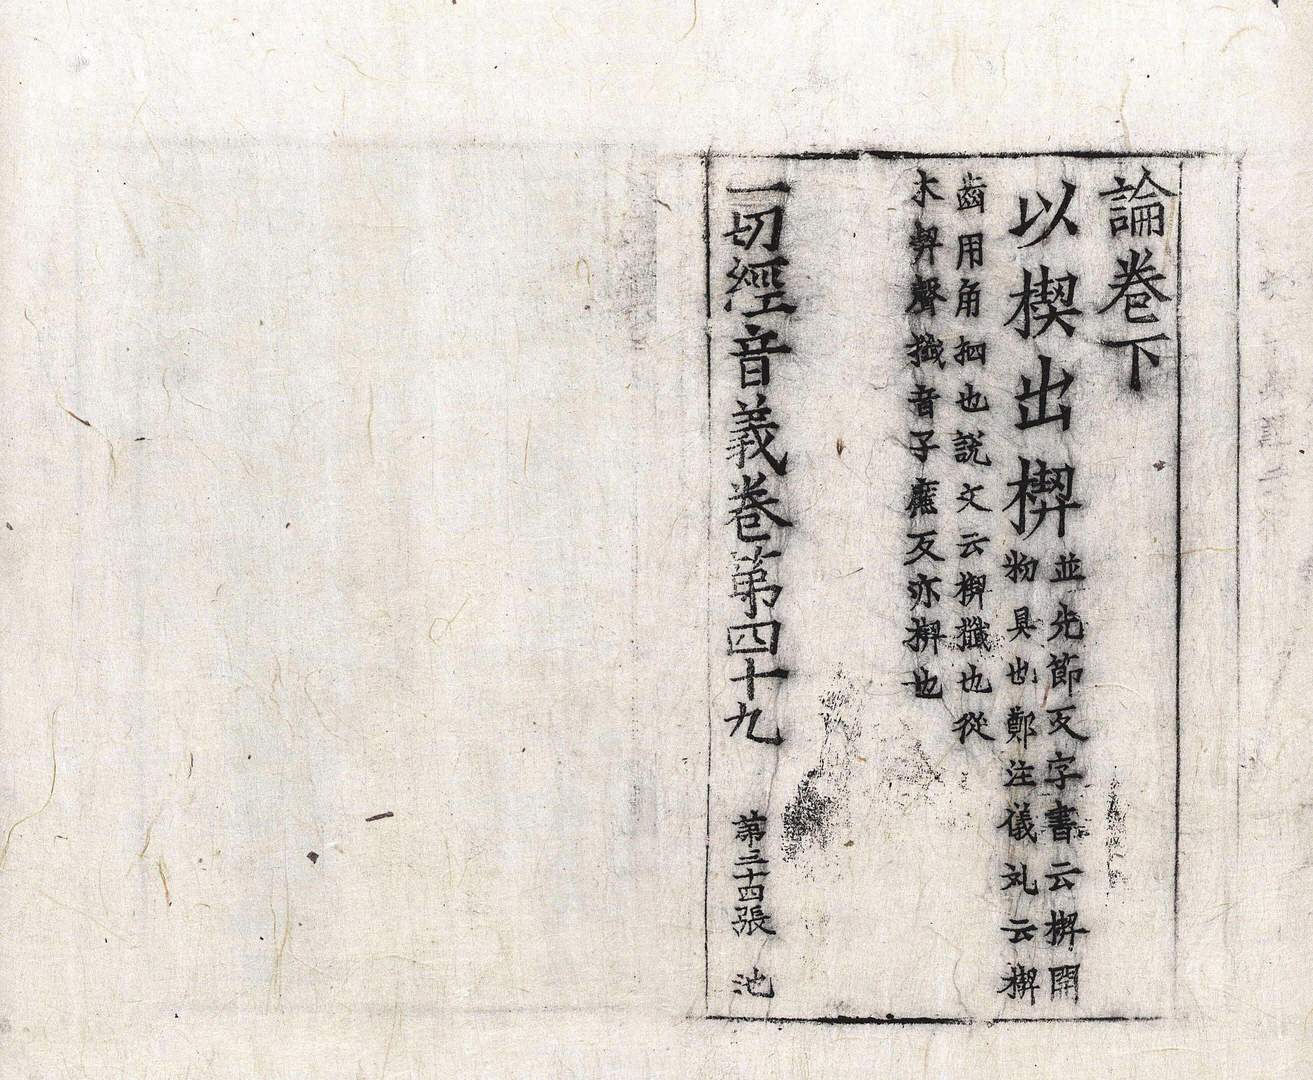 論卷下
以楔出楔
並先節反字書云楔開
物具也鄭注儀礼云楔
齒用角柶也說文云楔攕也從
木契聲攕音子廉反亦楔也
一切經音義卷第四十九 第三十四張 池